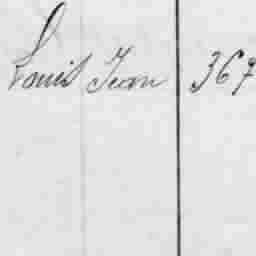 Louis Jean 367